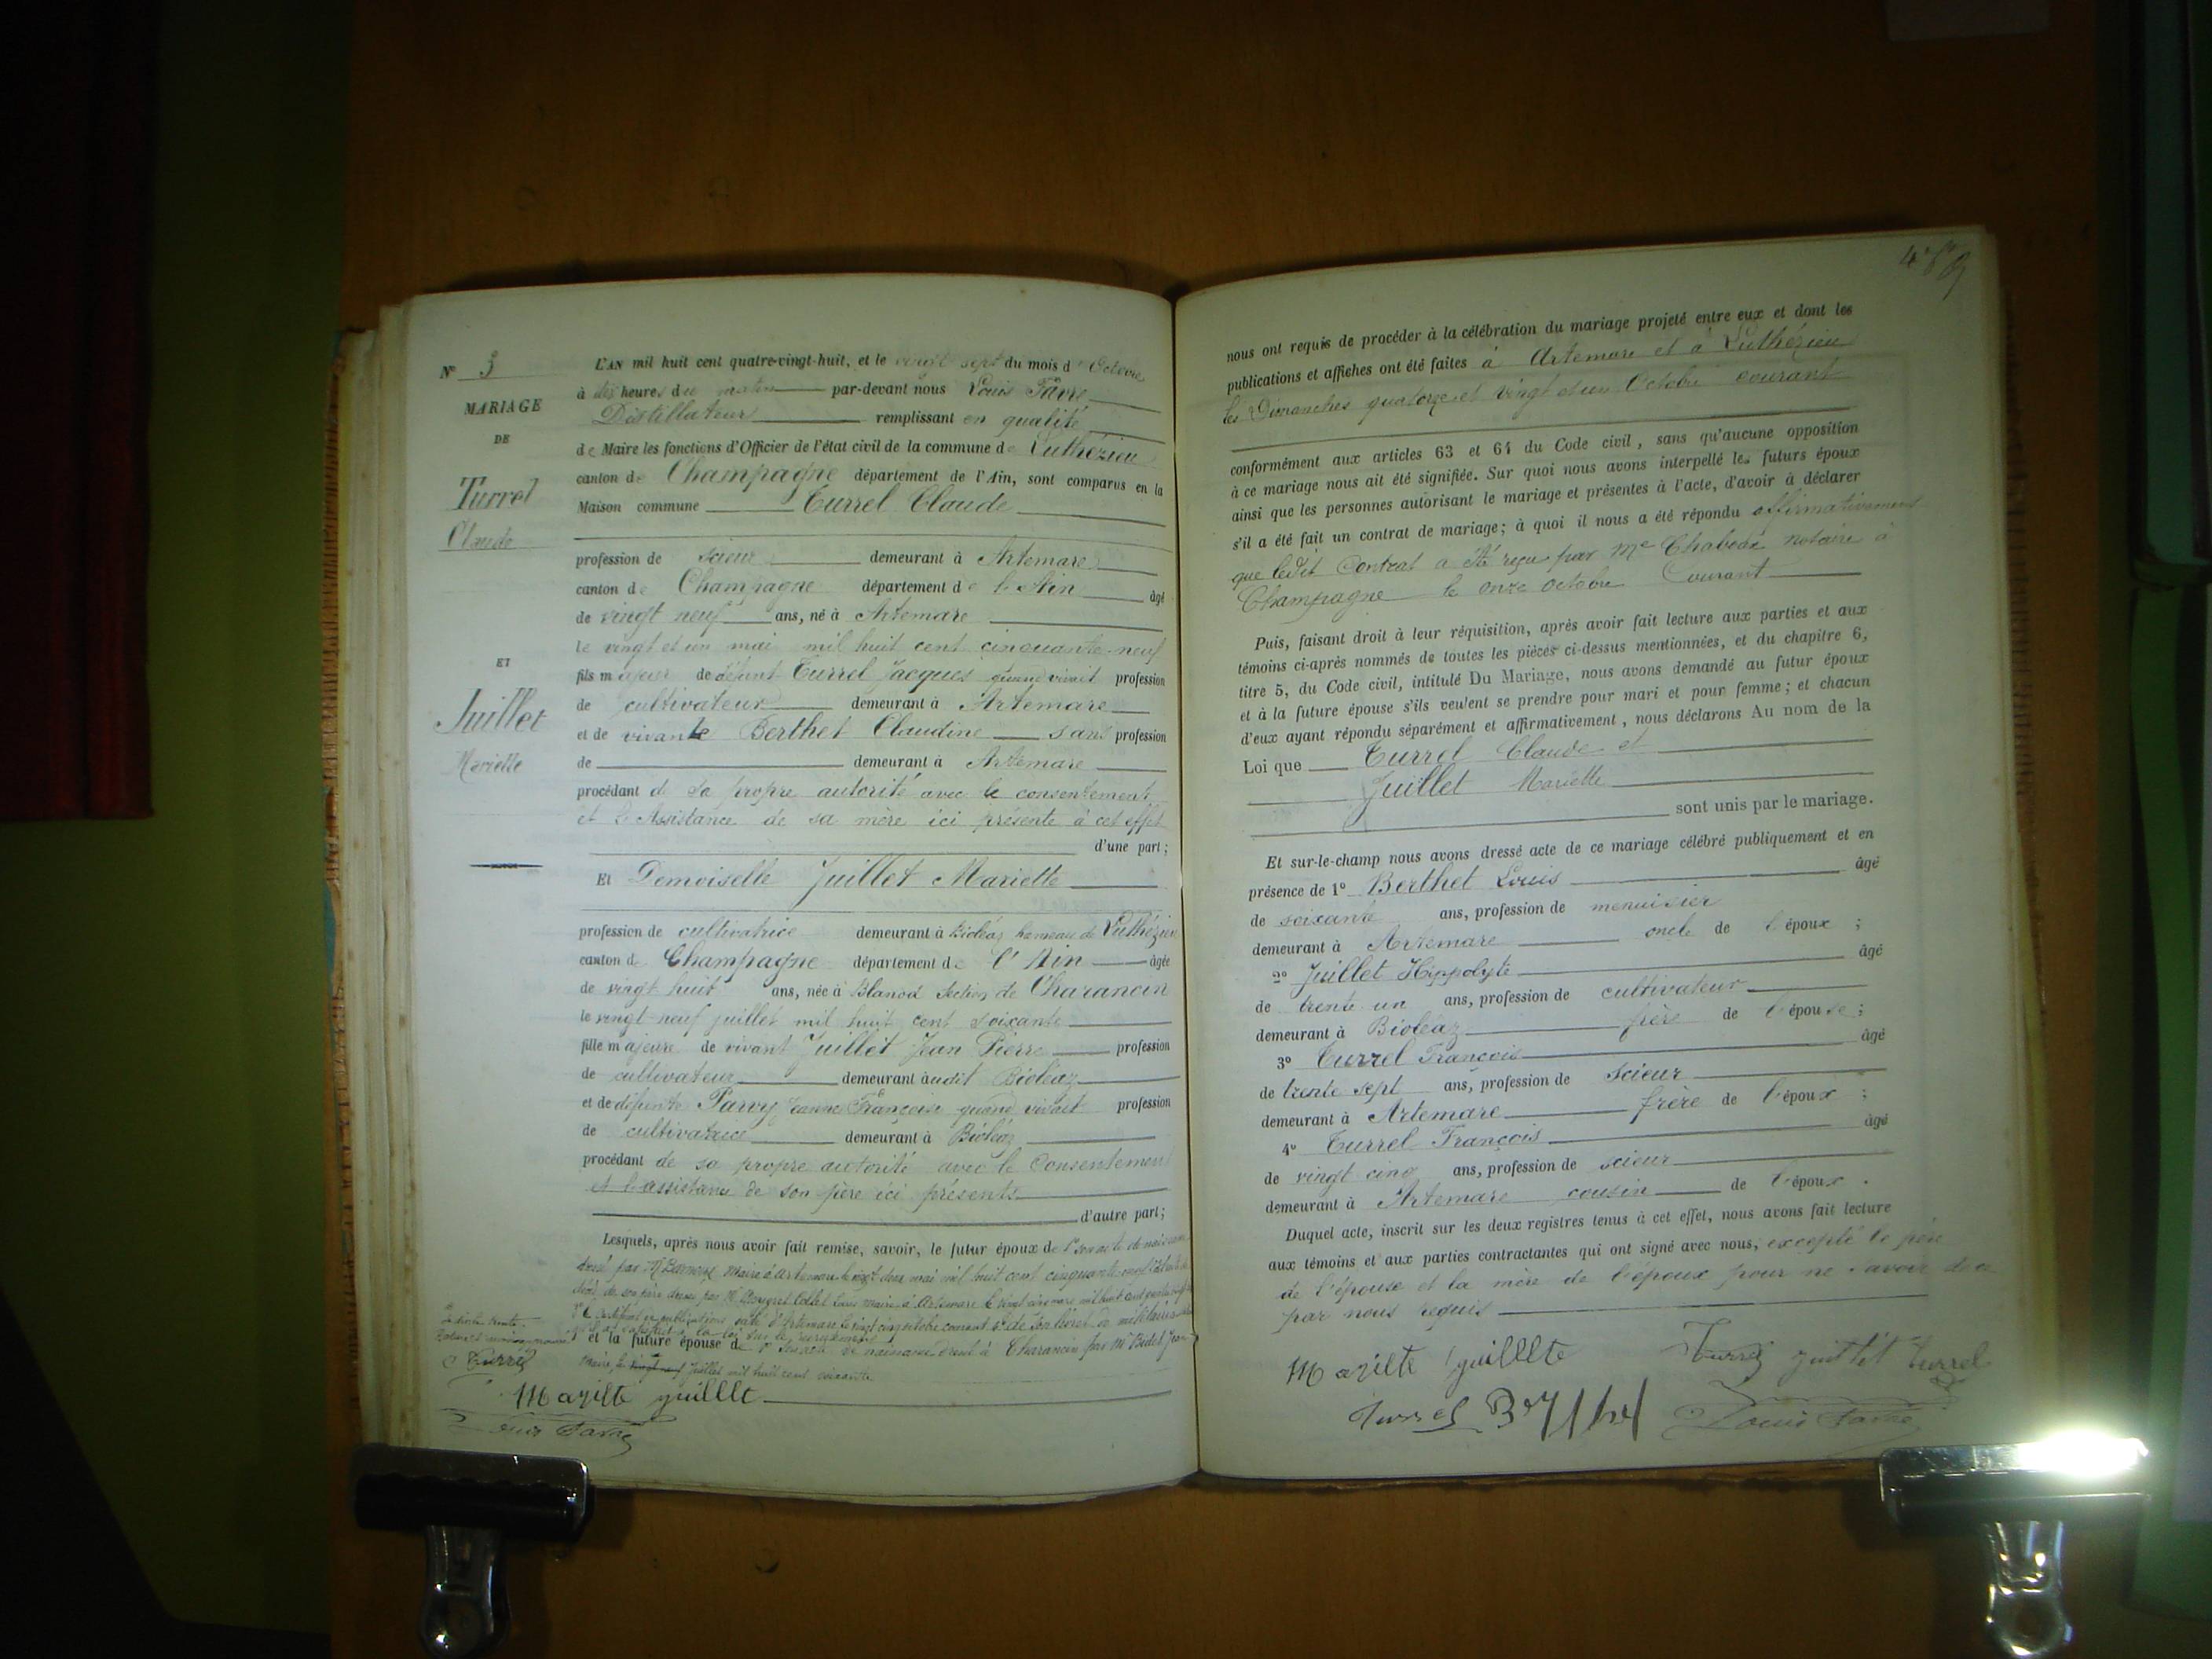 N° 3
MARIAGE
DE
Turrel
Claude
ET
Juillet
Mariette
L'AN mil huit cent quatre-vingt-huit, et le vingt sept du mois d'Octobre
à dix heures du matin par-devant nous Louis Favre
Distillateur remplissant en qualité
de Maire les fonctions d'Officier de l'état civil de la commune de Luthézieu
canton de Champagne département de l'Ain, sont comparus en la
Maison commune Turrel Claude
profession de scieur demeurant à Artemare
canton de Champagne département de l'Ain âgé
de vingt neuf ans, né à Artemare
le vingt et un mai mil huit cent cinquante-neuf
fils majeur de défunt Turrel Jacques quand vivait profession
de cultivateur demeurant à Artemare
et de vivante Berthet Claudine sans profession
de demeurant à Artemare
procédant de sa propre autorité avec le consentement
et l'Assistance de sa mère ici présente à cet effet
d'une part;
Et Demoiselle Juillet Mariette
profession de cultivatrice demeurant à Bioléaz hameau de Luthézieu
canton de Champagne département de l'Ain âgée
de vingt huit ans, née à section de Charancin
le vingt-neuf juillet mil huit cent soixante
fille majeure de vivant Juillet Jean Pierre profession
de cultivateur demeurant audit Bioléaz
et de défunte Parvy Jeanne Françoise quand vivait profession
de cultivatrice demeurant à Bioléaz
procédant de sa propre autorité avec le Consentement
et l'assistance de son père ici présents
d'autre part;
Lesquels, après nous avoir fait remise, savoir, le futur époux de 1° son acte de naissance
dressé par Maire à Artemare le vingt deux mai mil huit cent cinquante-neuf
décès de son père dressé par M. Louis maire à Artemare le vingt
publications daté d'Artemare le vingt cinq octobre courant 4° de son livret militaire
la loi sur le recrutement
et la future épouse de 1° son acte de naissance dressé à Charancin par Mr Bidet Jean
maire, le vingt neuf juillet mil huit cent soixante
Turrel
Mariete guilllt
Louis Favre
nous ont requis de procéder à la célébration du mariage projeté entre eux et dont les
publications et affiches ont été faites à Artemare et à Luthézieu
les Dimanches quatorze et vingt et un Octobre courant
conformément aux articles 63 et 64 du Code civil, sans qu'aucune opposition
à ce mariage nous ait été signifiée. Sur quoi nous avons interpellé les futurs époux
ainsi que les personnes autorisant le mariage et présentes à l'acte, d'avoir à déclarer
s'il a été fait un contrat de mariage; à quoi il nous a été répondu affirmativement
que ledit Contrat a été reçu par Me notaire à
Champagne le onze octobre Courant
Puis, faisant droit à leur réquisition, après avoir fait lecture aux parties et aux
témoins ci-après nommés de toutes les pièces ci-dessus mentionnées, et du chapitre 6,
titre 5, du Code civil, intitulé Du Mariage, nous avons demandé au futur époux
et à la future épouse s'ils veulent se prendre pour mari et pour femme; et chacun
d'eux ayant répondu séparément et affirmativement, nous déclarons Au nom de la
Loi que Turrel Claude et
Juillet Mariette
sont unis par le mariage.
Et sur-le-champ nous avons dressé acte de ce mariage célébré publiquement et en
présence de 1° Berthet Louis âgé
de soixante ans, profession de menuisier
demeurant à Artemare oncle de l'époux ;
2° Juillet Hippolyte âgé
de trente un ans, profession de cultivateur
demeurant à Bioléaz frère de l'épouse ;
3° Turrel François âgé
de trente sept ans, profession de scieur
demeurant à Artemare frère de l'époux ;
4° Turrel François âgé
de vingt cinq ans, profession de scieur
demeurant à Artemare cousin de l'époux .
Duquel acte, inscrit sur les deux registres tenus à cet effet, nous avons fait lecture
aux témoins et aux parties contractantes qui ont signé avec nous, excepté le père
de l'épouse et la mère de l'époux pour ne savoir de ce
par nous requis
Mariete guilllte Turrel juillet turrel
Turrel Berthet Louis Favre